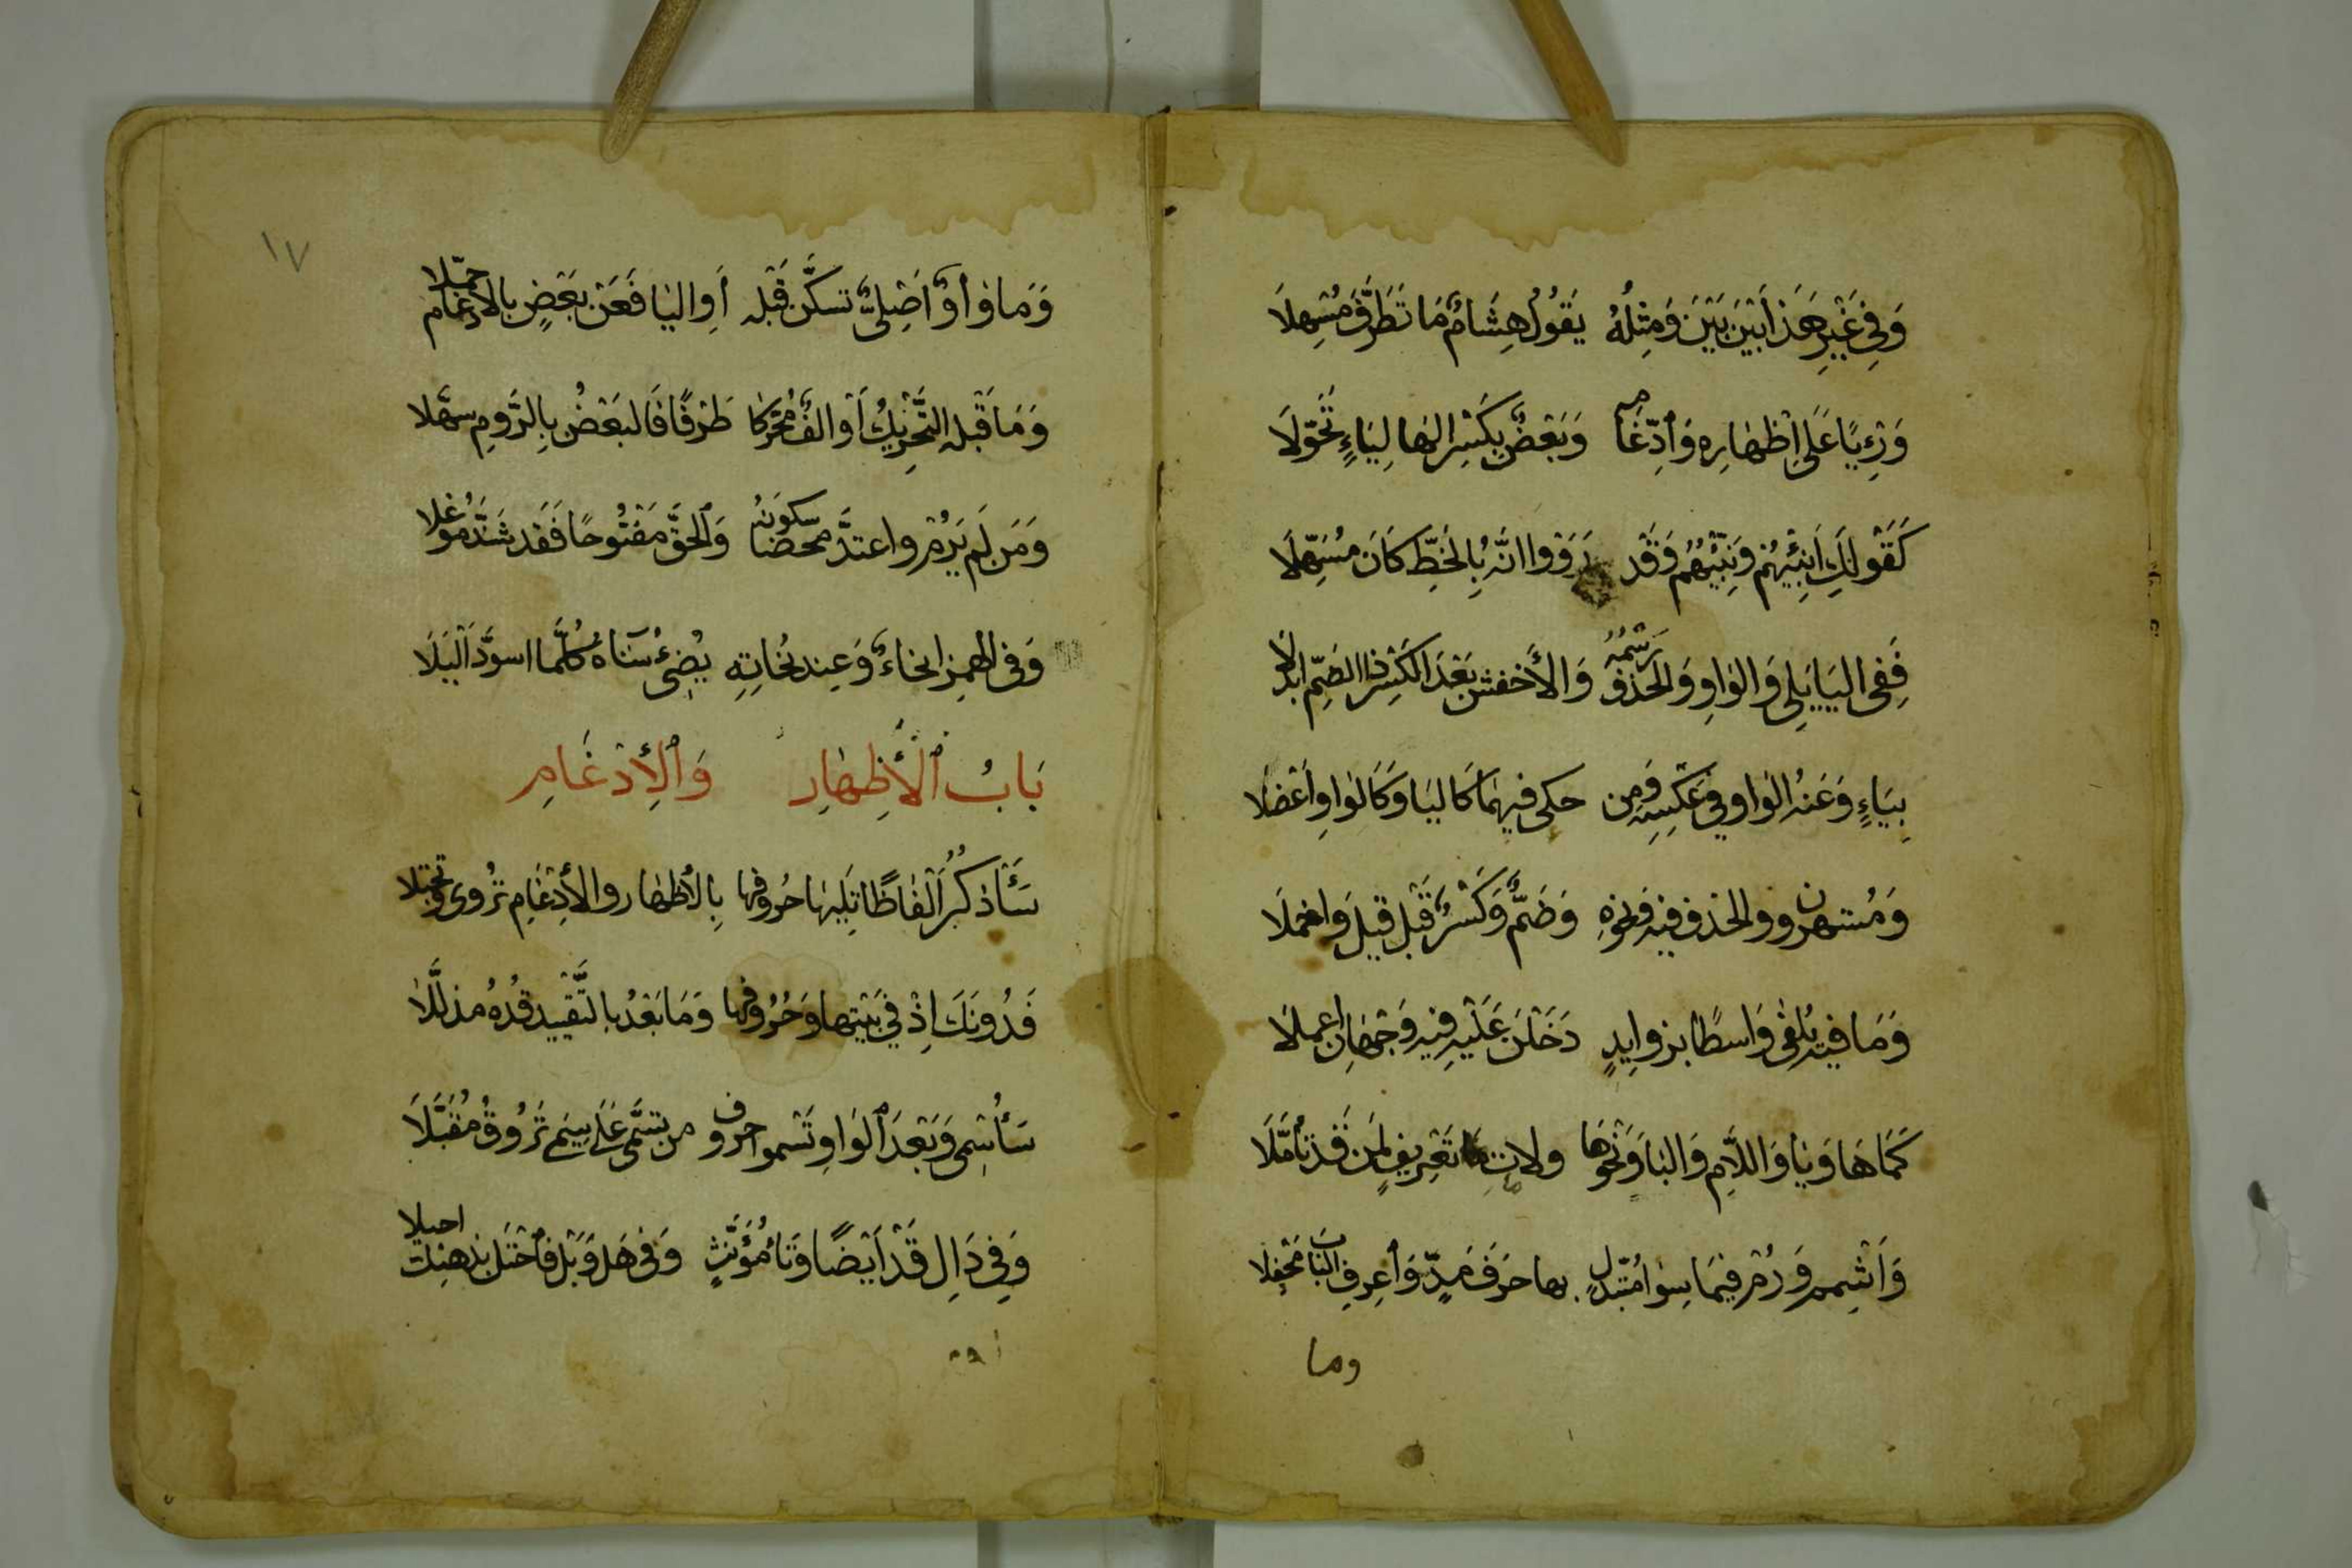 وَفِي غَيْرِ هَذَا بَيْنَ بَيْنَ وَمِثْلُهُ يَقُولُ هِشَامٌ مَا تَطَرَّفَ مُسْهِلَا
وَرِءْيًا عَلَى اِظْهَارِهِ وَادِّغَامِهِ وَبَعْضٌ بِكَسْرِ الهَا لِيَاءٍ تَحَوَّلَا
كَقَوْلِكَ اَنْبِئْهُمْ وَنَبِّئْهُمْ وَقَدْ رَوَوْا انَّهُ بِالخَطِّ كَانَ مُسَهِّلَا
فَفِي اليَا يَلِي وَالوَاوِ وَالحَذْفِ رَسْمُهُ وَالأَخْفَشُ بَعْدَ الكَسْرِ ذَا الضَمِّ ابْدَلَا
بِيَاءٍ وَعَنْهُ الوَاو فِي عَكْسِهِ وَمَن حكى فِيهِمَا كَاليَا وَكَالوَاوِ اَعْضَلا
وَمُسْتهزون والحذف فيه وَنحوِهِ وَضَمٌّ وَكَسْرٌ قَبْلُ قِيلَ وَاخمِلَا
وَمَا فيه يُلْفى وَاسطًا بزوايدٍ دَخَلْنَ عَلَيْهِ فيهِ وَجْهَانِ اعمِلَا
كَمَا هَا وَيَا وَاللَّامِ وَالبَا وَنَحْوَهَا ولامات تَعْرِيفٍ لِمَن قَدْ تأَمَّلَا
وَاَشْمِم وَرُمْ فيمَا سِوَا مُتَبَدِّلٍ بها حَرفَ مَدٍّ وَاعْرِفِ البَابَ مَحْفِلا
وما
١٧
وَمَا وَاوٌ اَصْلِيٌّ تسكَّن قَبْله أَوِ اليَا فَعَن بَعْضٍ بالادغام حمّلا
وَمَا قَبْله التَّحْرِيكُ أَوْ الفٌ مُحَرَّكا طَرَفًا فَالبَعْضُ بِالرَّومِ سهَّلا
وَمَن لَم يَرُمْ واعتدَّ محضًا سكونَهُ وَالحَقَّ مَفْتُوحًا فَقَد شَذَّ مُوغلا
وَفي الهمزِ انحاءٌ وَعِند نُحَاتِهِ يُضِيءُ سَنَاهُ كُلَّمَا اسوَدَّ اَلْيَلَا
بَابُ الْأِظهَارِ وَالْإِدْغَامِ
سَأَذكُرُ اَلْفَاظًا تَلِيهَا حُرُوفها بِالأظهَار والأِدْغَامِ تُروى وتجتلا
فَدُونَكَ اِذْ فِي بَيْتِهَا وَحُرُوفها وَمَا بَعْدُ بالتَّقْيِيد قُدْهُ مذلَّلَا
سَأُسْمِي وَبَعْدَ الوَاوِ تَسْمو حروف من تسَمَّى عَلَى سِيمى تَرُوقُ مُقَبَّلَا
وَفِي دَالِ قَدْ اَيْضًا وَتَا مُؤَنَّثٍ وَفي هَل وَبَل فَاحْتَل بذهنِك احيلا